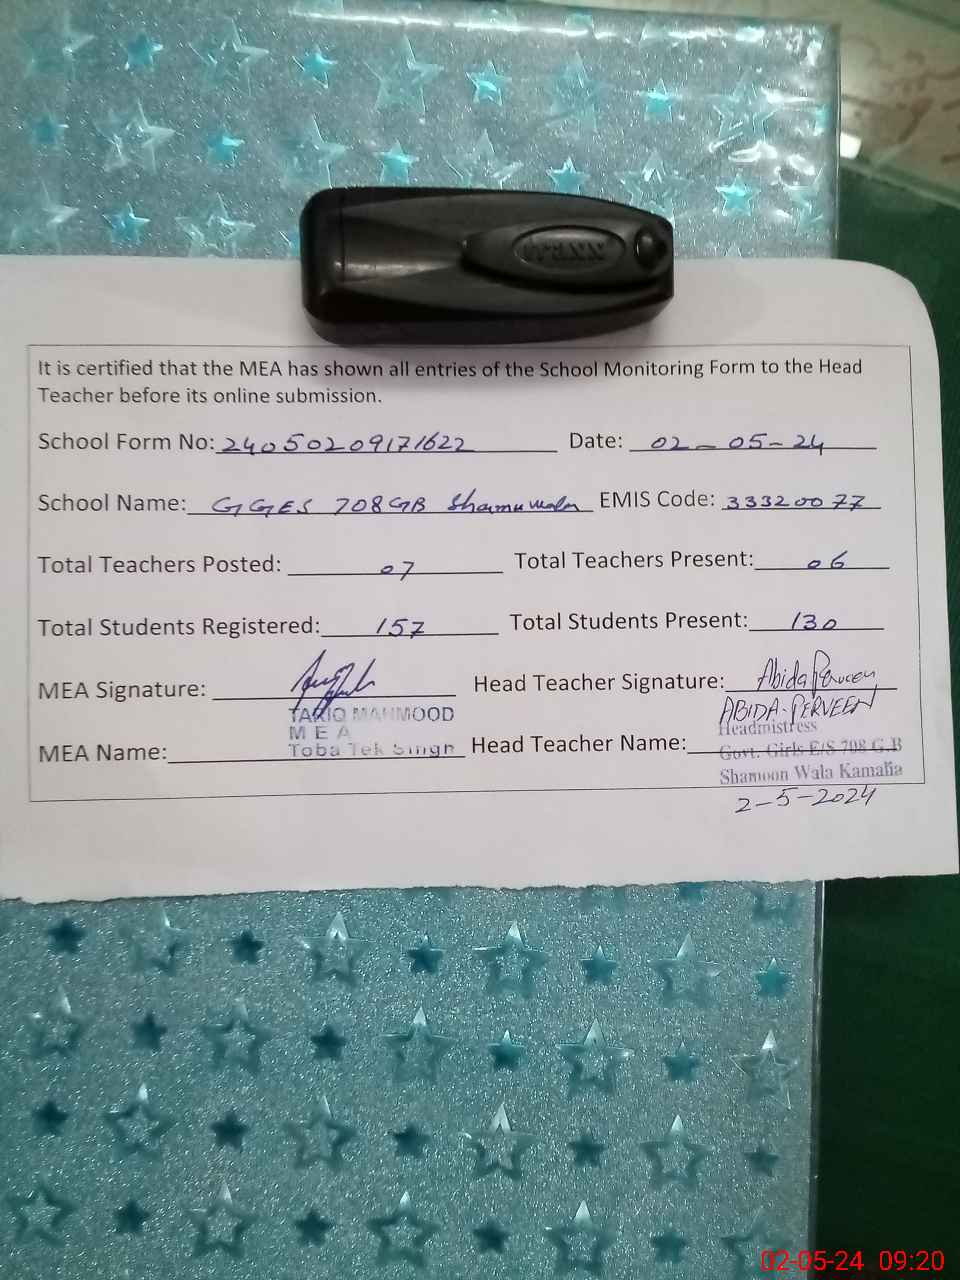 traxx
It is certified that the MEA has shown all entries of the School Monitoring Form to the Head
Teacher before its online submission.
School Form No: 24050209171622 Date: 02-05-24
School Name: GGES 708GB Shamu wala EMIS Code: 33320077
Total Teachers Posted: 07 Total Teachers Present: 06
Total Students Registered: 157 Total Students Present: 130
MEA Signature: Head Teacher Signature: Abida Perveen
TARIQ MAHMOOD ABIDA-PERVEEN
M E A Headmistress
MEA Name: Toba Tek Singh Head Teacher Name: Govt. Girls E/S 708 G.B
Shamoon Wala Kamalia
2-5-2024
02-05-24 09:20